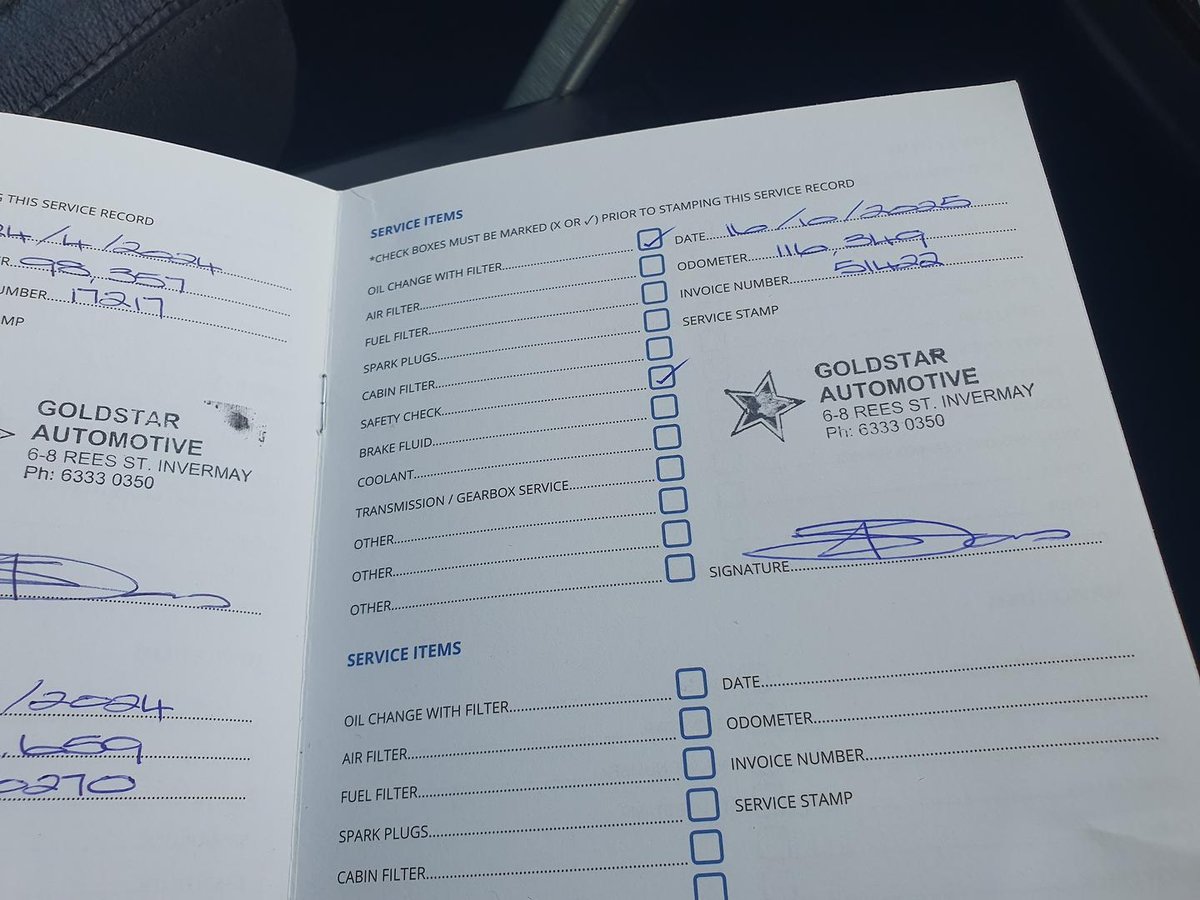 G THIS SERVICE RECORD
24/4/2024
98,357
NUMBER 17217
GOLDSTAR
AUTOMOTIVE
6-8 REES ST. INVERMAY
Ph: 6333 0350
/2024
659
0270
SERVICE ITEMS
*CHECK BOXES MUST BE MARKED (X OR ✓) PRIOR TO STAMPING THIS SERVICE RECORD
OIL CHANGE WITH FILTER ✓
AIR FILTER
FUEL FILTER
SPARK PLUGS
CABIN FILTER
SAFETY CHECK ✓
BRAKE FLUID
COOLANT
TRANSMISSION / GEARBOX SERVICE
OTHER
OTHER
OTHER
DATE 16/10/2025
ODOMETER 116,349
INVOICE NUMBER 51422
SERVICE STAMP
GOLDSTAR
AUTOMOTIVE
6-8 REES ST. INVERMAY
Ph: 6333 0350
SIGNATURE
SERVICE ITEMS
OIL CHANGE WITH FILTER
AIR FILTER
FUEL FILTER
SPARK PLUGS
CABIN FILTER
DATE
ODOMETER
INVOICE NUMBER
SERVICE STAMP